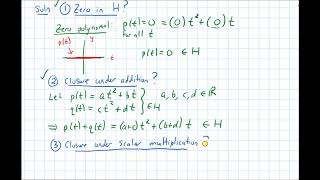 Soln ✓ ① Zero in H?
Zero polynomial: p(t)=0 = (0)t² + (0)t
for all t
p(t) y
t
p(t)=0 ∈ H
✓ ② Closure under addition?
Let p(t) = at² + bt
q(t) = ct² + dt } ∈ H a, b, c, d ∈ ℝ
⇒ p(t)+q(t) = (a+c)t² + (b+d)t ∈ H
③ Closure under scalar multiplication?